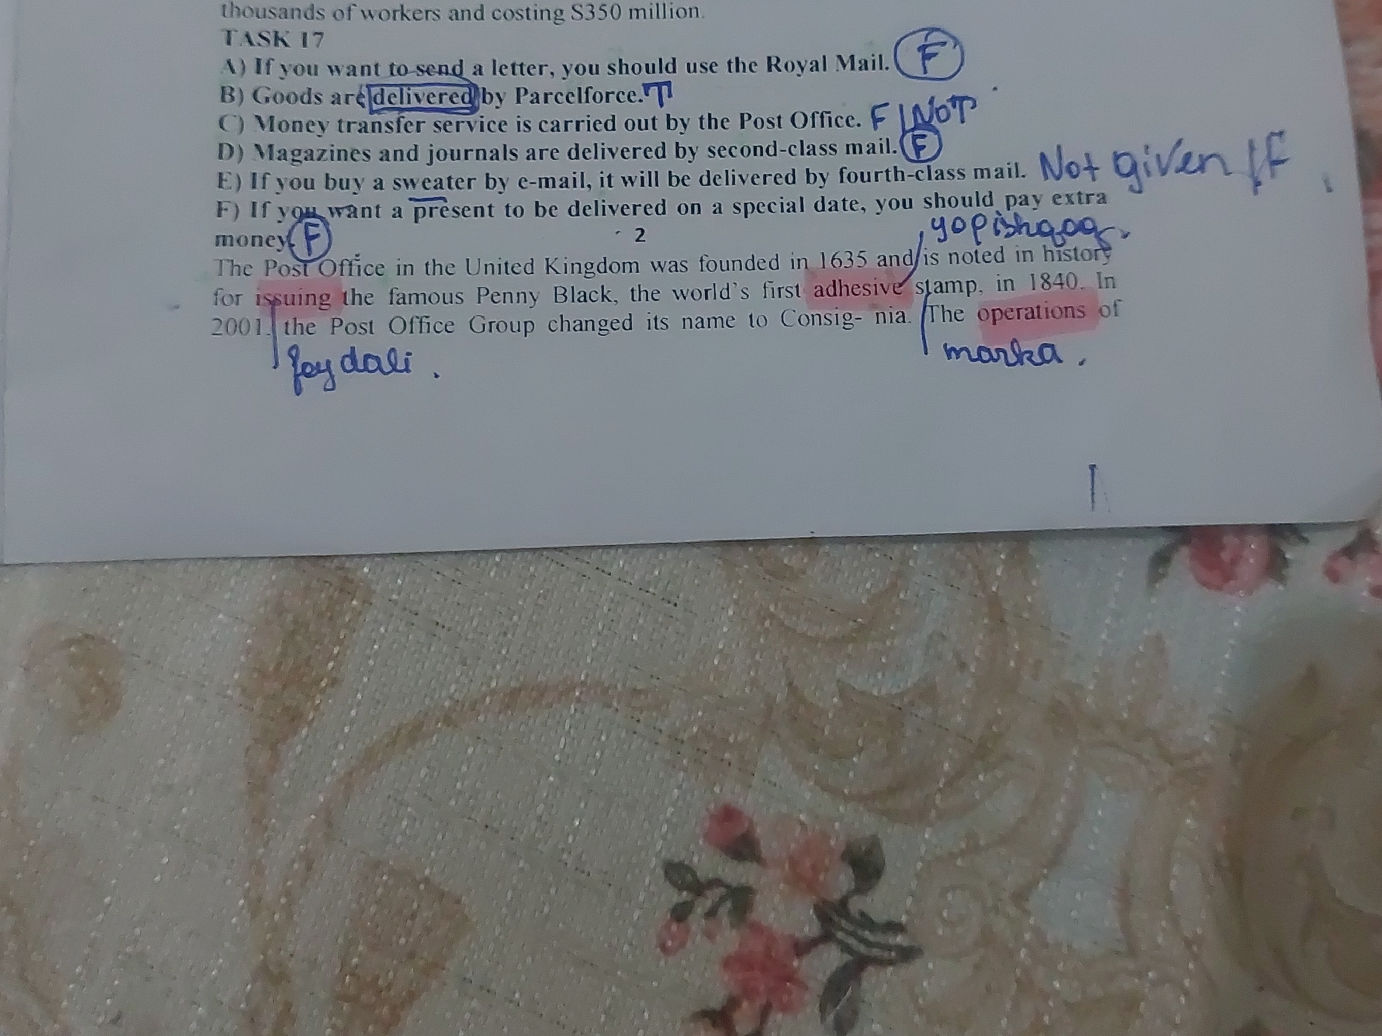 thousands of workers and costing S350 million.
TASK 17
A) If you want to send a letter, you should use the Royal Mail. F
B) Goods are delivered by Parcelforce. T
C) Money transfer service is carried out by the Post Office. F | NOT
D) Magazines and journals are delivered by second-class mail. F
E) If you buy a sweater by e-mail, it will be delivered by fourth-class mail. Not given F
F) If you want a present to be delivered on a special date, you should pay extra
money F
2
yopishqoq
The Post Office in the United Kingdom was founded in 1635 and is noted in history
for issuing the famous Penny Black, the world's first adhesive stamp, in 1840. In
2001, the Post Office Group changed its name to Consig- nia. The operations of
foydali. marka.